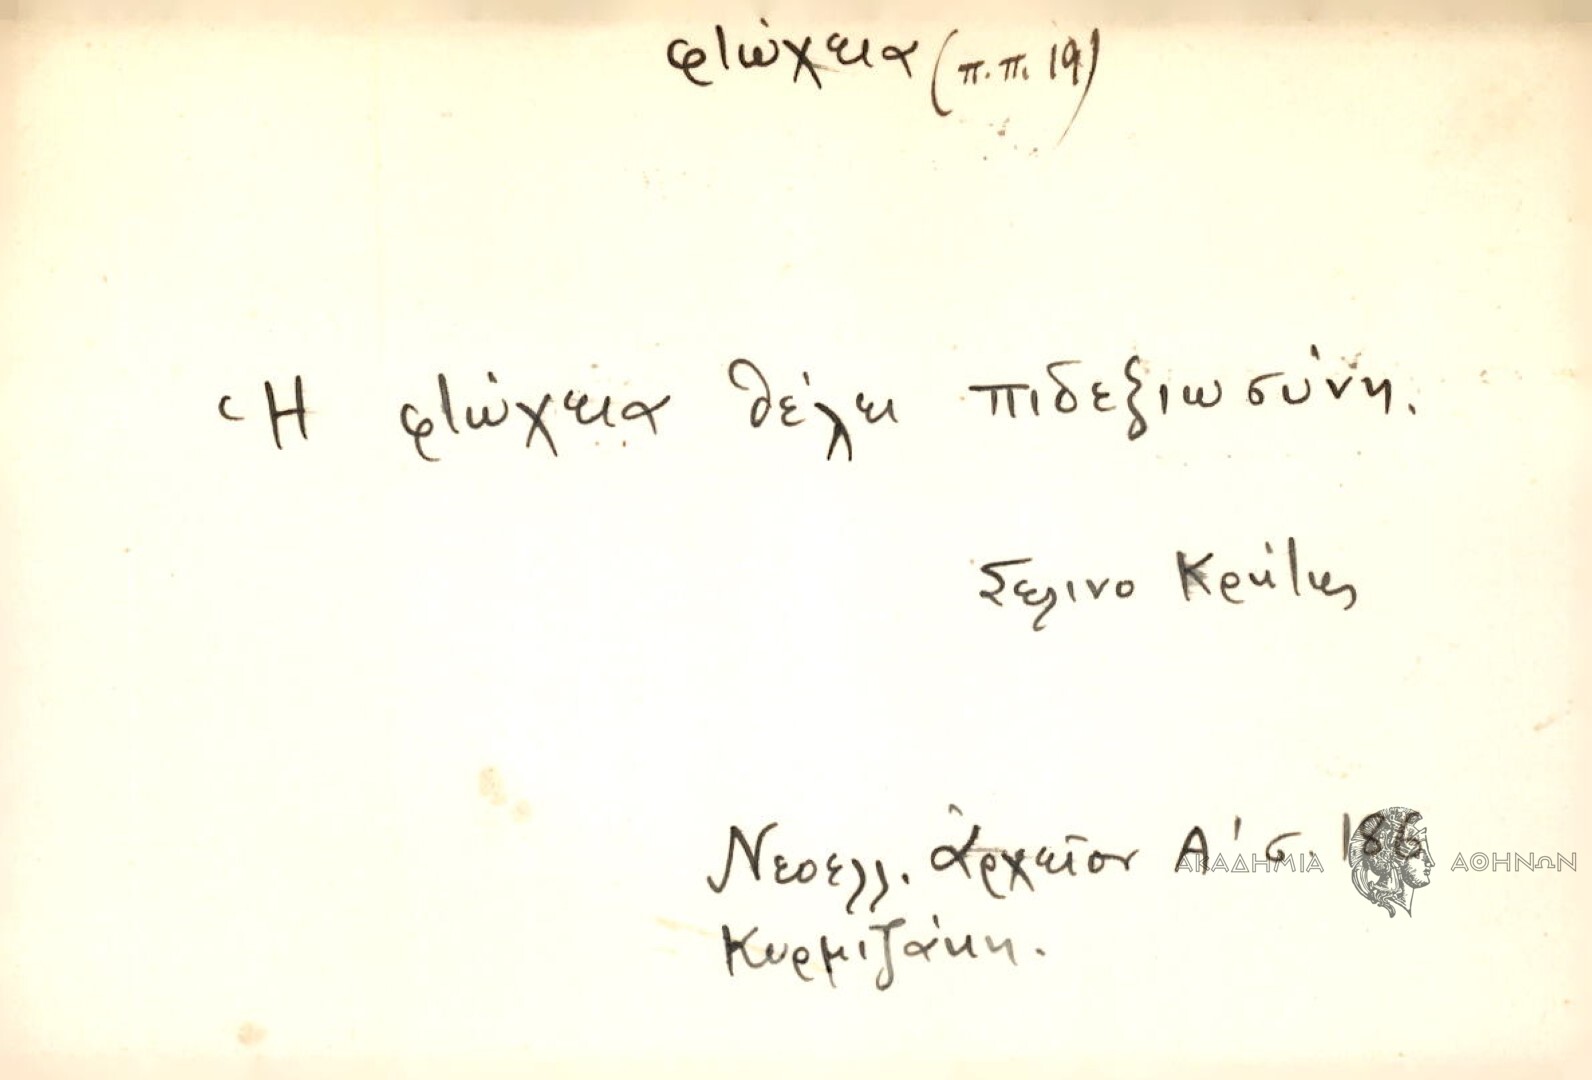 φτώχεια (π.π. 19)
Ἡ φτώχεια θέλει πιδεξιωσύνη.
Σελινο Κρήτης
Νεοελλ. ἀρχεῖον Α' σ. 186
Κυρμιζάκη.
ΑΚΑΔΗΜΙΑ ΑΘΗΝΩΝ